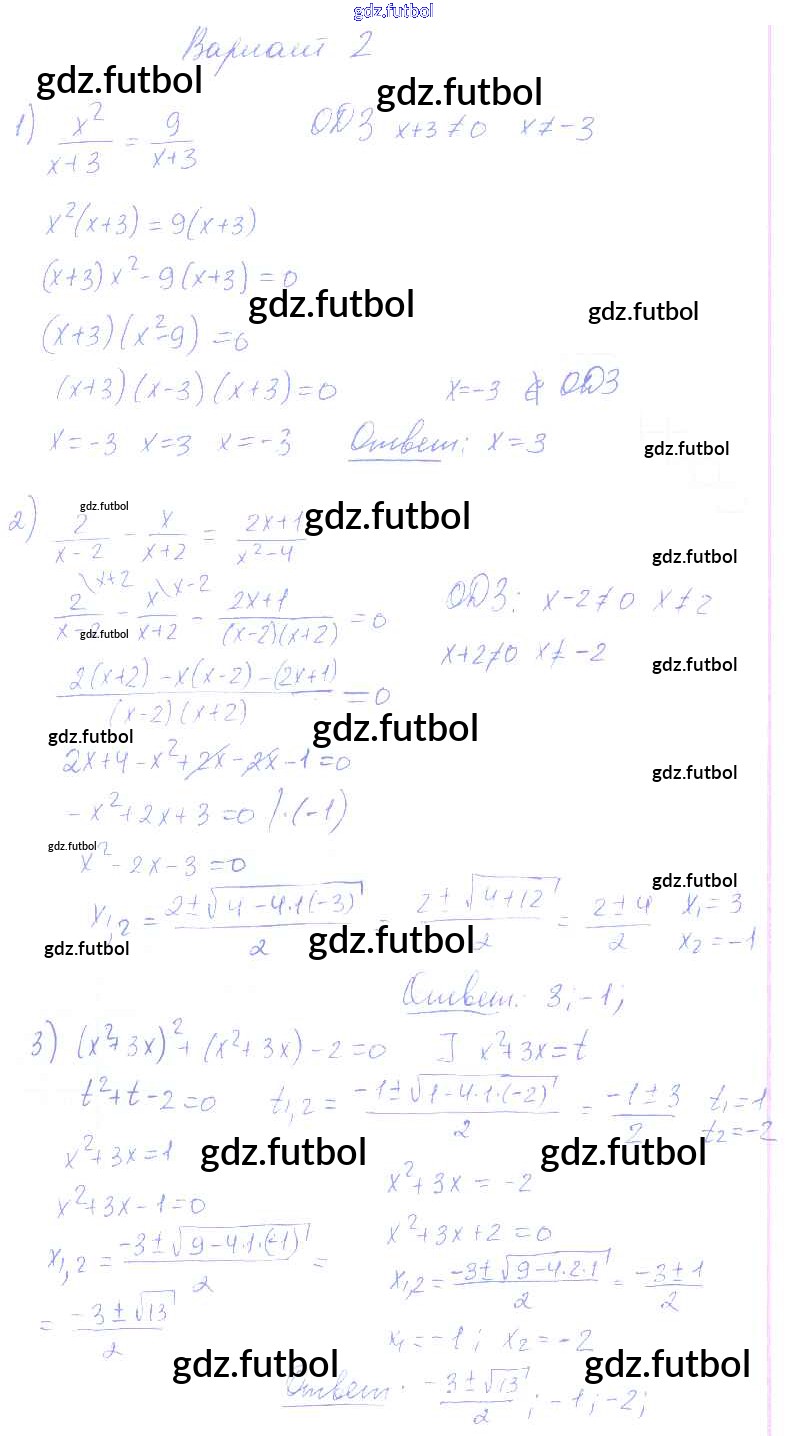 gdz.futbol
Вариант 2
gdz.futbol gdz.futbol
1) x²/(x+3) = 9/(x+3) ОДЗ x+3≠0 x≠-3
x²(x+3) = 9(x+3)
(x+3)x² - 9(x+3) = 0
gdz.futbol gdz.futbol
(x+3)(x²-9) = 0
(x+3)(x-3)(x+3) = 0 x=-3 ∉ ОДЗ
x=-3 x=3 x=-3 Ответ: x=3
gdz.futbol
gdz.futbol gdz.futbol
2) 2/(x-2) - x/(x+2) = (2x+1)/(x²-4)
gdz.futbol
2/(x-2) \x+2 - x/(x+2) \x-2 - (2x+1)/((x-2)(x+2)) = 0 ОДЗ: x-2≠0 x≠2
gdz.futbol
x+2≠0 x≠-2
gdz.futbol
(2(x+2) - x(x-2) - (2x+1))/((x-2)(x+2)) = 0
gdz.futbol gdz.futbol
2x+4-x²+2x-2x-1=0
gdz.futbol
-x²+2x+3=0 |·(-1)
gdz.futbol
x²-2x-3=0
gdz.futbol
x1,2 = (2±√(4-4·1(-3)))/2 = (2±√(4+12))/2 = (2±4)/2 x₁=3
x₂=-1
gdz.futbol gdz.futbol
Ответ: 3; -1;
3) (x²+3x)² + (x²+3x) - 2 = 0 ] x²+3x=t
t²+t-2=0 t1,2 = (-1±√(1-4·1·(-2)))/2 = (-1±3)/2 t₁=1
t₂=-2
gdz.futbol gdz.futbol
x²+3x=1 x²+3x=-2
x²+3x-1=0 x²+3x+2=0
x1,2 = (-3±√(9-4·1·(-1)))/2 = x1,2 = (-3±√(9-4·2·1))/2 = (-3±1)/2
= (-3±√13)/2 x₁=-1; x₂=-2
gdz.futbol gdz.futbol
Ответ: (-3±√13)/2; -1; -2;